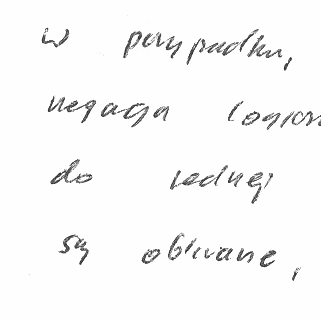 w przypadku,
negacja logiczn
do jednej
są obliczane,